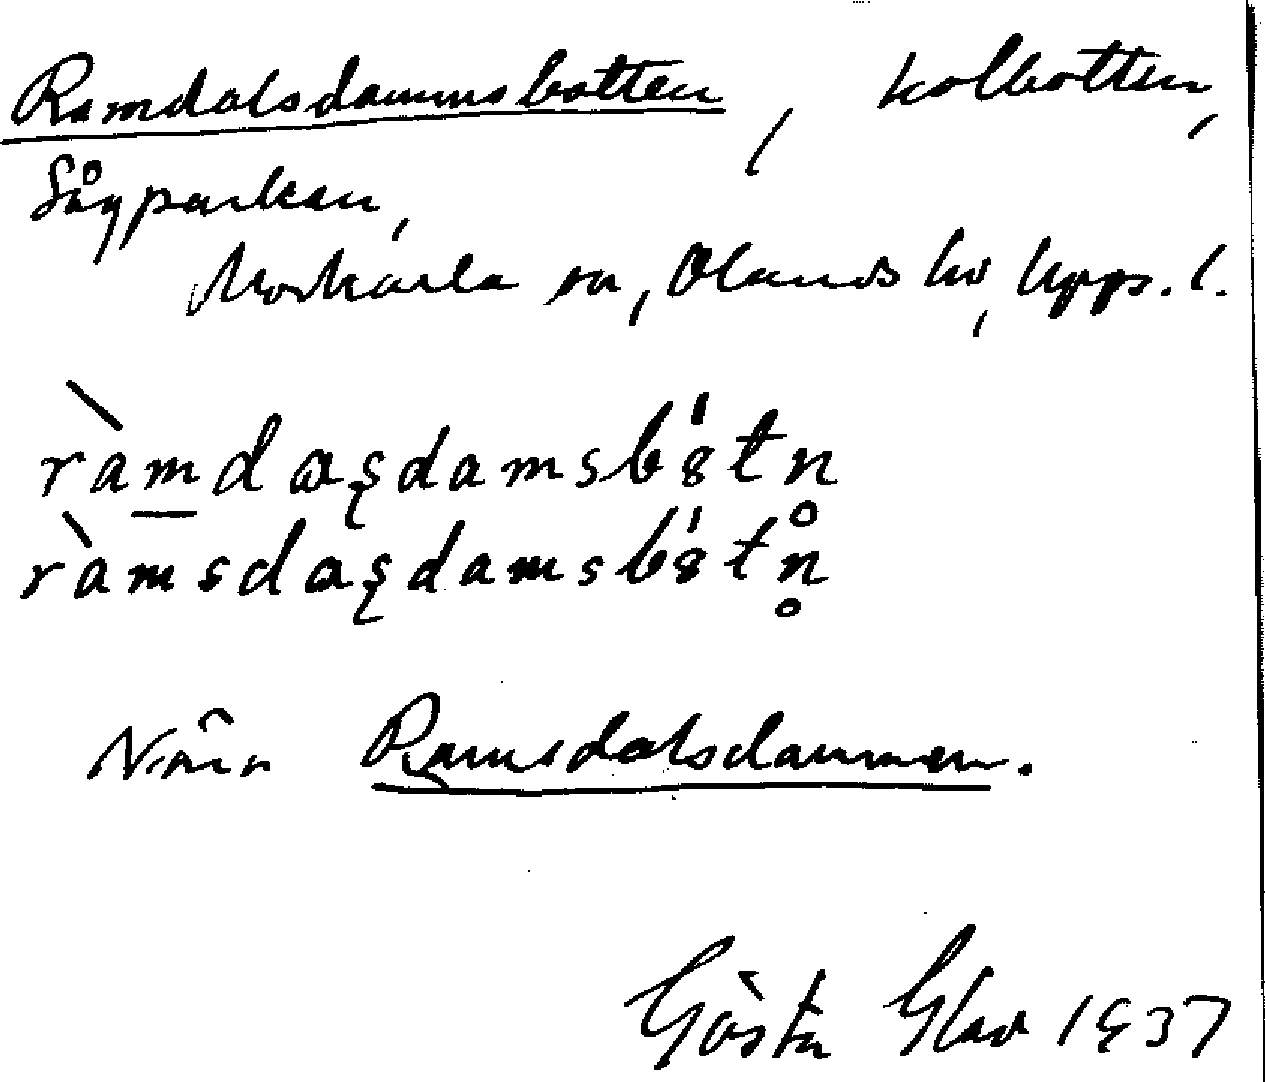 Ramdalsdammsbotten, kolbotten,
Sågparken,
Morkarla sn, Olands hd, Upps. l.
ràmdaʂdamsbȣ́tn̥
ràmsdaʂdamsbȣ́tn̥
Nära Ramsdalsdammen.
Gösta Glav 1937